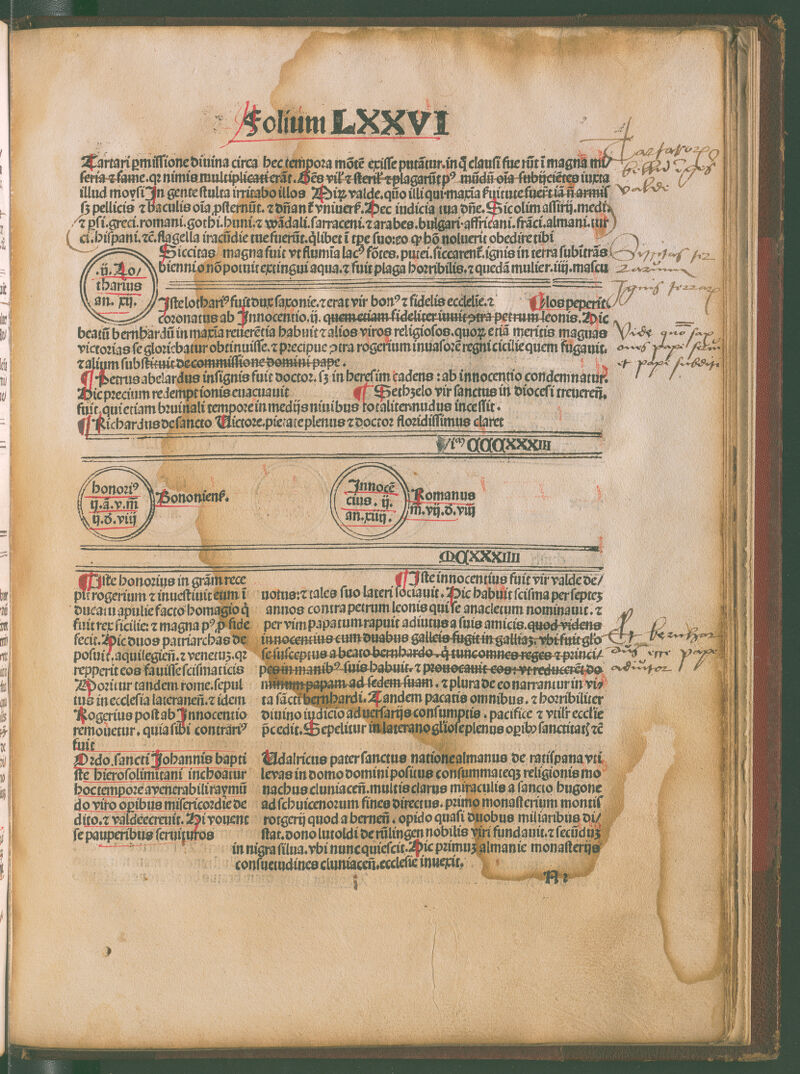 Folium LXXVI
Tartari ꝑmissione diuina circa hec tempora mōtē exisse putātur. in q̄ clausi fuerūt ī magna mi/
seria ⁊ fame. qꝛ nimis multiplicati erāt. Gēs vil' ⁊ steril' ⁊ plagarūt pꝰ mūdū oīa subijciētes iuxta
illud moysi In gente stulta irritabo illos valde. quō illi qui maxīa fuitute fuerūt īa ⁊ armis
sꝫ pellicis ⁊ baculis oīa ꝓsternūt. ⁊ dn̄ant vniuers. Hec indicia tua dn̄e. Sic olim assirij. medi.
⁊ ꝑsi. greci. romani. gothi. huni. ⁊ wādali. sarraceni. ⁊ arabes. bulgari. affricani. frāci. almani. tur
ci. hispani. ⁊c̄. flagella iracūdie tue fuerūt. q̄libet ī tp̄e suo. eo ꝙ hō noluerit obedire tibi
Siccitas magna fuit vt flumīa lacꝰ fōtes. putei. siccarent. ignis in terra subintrās
biennio nō potuit extingui aqua. ⁊ fuit plaga horribilis. ⁊ quedā mulier. iiij. mascu
.ij. Lo/
tharius
an. xij.
los peperit
Iste lothariꝰ fuit dux saxonie. ⁊ erat vir bonꝰ ⁊ fidelis ecclesie. ⁊
coronatus ab Innocentio. ij. quem etiam fideliter iuuit ↄtra petrum leonis. Hic
beatū bernhardū in maxīa reuerētia habuit ⁊ alios viros religiosos. quoꝝ etiā meritis magnas
victorias se gloriabatur obtinuisse. ⁊ precipue ↄtra rogerium inuasorē regni cicilie quem fugauit.
⁊ alium substituit de commissione domini pape.
Petrus abelardus insignis fuit doctor. sꝫ in heresim cadens: ab innocentio condemnatur.
Hic precium redemptionis euacuauit Gethzelo vir sanctus in diocesi treueren̄.
fuit. qui etiam brumali tempore in medijs niuibus totaliter nudus incessit.
Richardus de sancto Uictore. pietate plenus ⁊ doctor floridissimus claret
CCCXXXIII
honoriꝰ
ij. ā. v. m̄
ij. d. viij
Bononiens.
Innocē
cius. ij.
an. xiiij.
Romanus
m̄. vij. d. viij
MCXXXIIII
Iste honorius in grām rece
pit rogerium ⁊ inuestiuit eum ī
ducatu apulie facto homagio q̄
fuit rex sicilie: ⁊ magna pꝰ ꝓ fide
fecit. Hic duos patriarchas de
posuit. aquilegien̄. ⁊ venetuꝫ. qꝛ
repperit eos fauisse scismaticis
Moritur tandem rome. sepul
tus in ecclesia lateranen̄. ⁊ idem
Rogerius post ab Innocentio
remouetur. quia sibi contrariꝰ
fuit
Ordo. sancti Johannis bapti
ste hierosolimitani inchoatur
hoc tempore a venerabili raymū
do viro operibus misericordie de
dito. ⁊ valde creuit. Hi vouent
se pauperibus seruituros
Iste innocentius fuit vir valde de/
uotus: ⁊ tales suo lateri sociauit. Hic habuit scisma per septeꝫ
annos contra petrum leonis qui se anacletum nominauit. ⁊
per vim papatum rapuit adiutus a suis amicis. quod videns
innocentius cum duabus galleis fugit in gallias. vbi fuit glo
se susceptus a beato bernhardo. q̄ tunc omnes reges ⁊ princi/
pes in manibꝰ suis habuit. ⁊ prouocauit eos: vt reducerēt do
minum papam ad sedem suam. ⁊ plura de eo narrantur in vi/
ta sācti bernhardi. Tandem pacatis omnibus. ⁊ horribiliter
diuino iudicio aduersarijs consumptis. pacifice ⁊ vtilr̄ ecclie
p̄cedit. Sepelitur in laterano gliose plenus opibꝰ sanctitatꝫ ⁊c̄
Udalricus pater sanctus natione almanus de ratispana vti
leuas in domo domini positus consummateqꝫ religionis mo
nachus cluniacen̄. multis clarus miraculis a sancto hugone
ad schuicenorum fines directus. primo monasterium montis
rotgerij quod a bernen̄. opido quasi duobus miliaribus di/
stat. dono lutoldi de rūlingen nobilis viri fundauit. ⁊ secūduꝫ
in nigra silua. vbi nunc quiescit. Hic primuꝫ almanie monasterijs
consuetudines cluniacen̄. ecclesie inuexit.
Tartarorꝫ
bellū īgēs
valde
Siccitas ter
rarum
Ignis terrarꝫ
Vide quō
pape
et pape subditi
Et bernhar
dus esse pape
adiutor